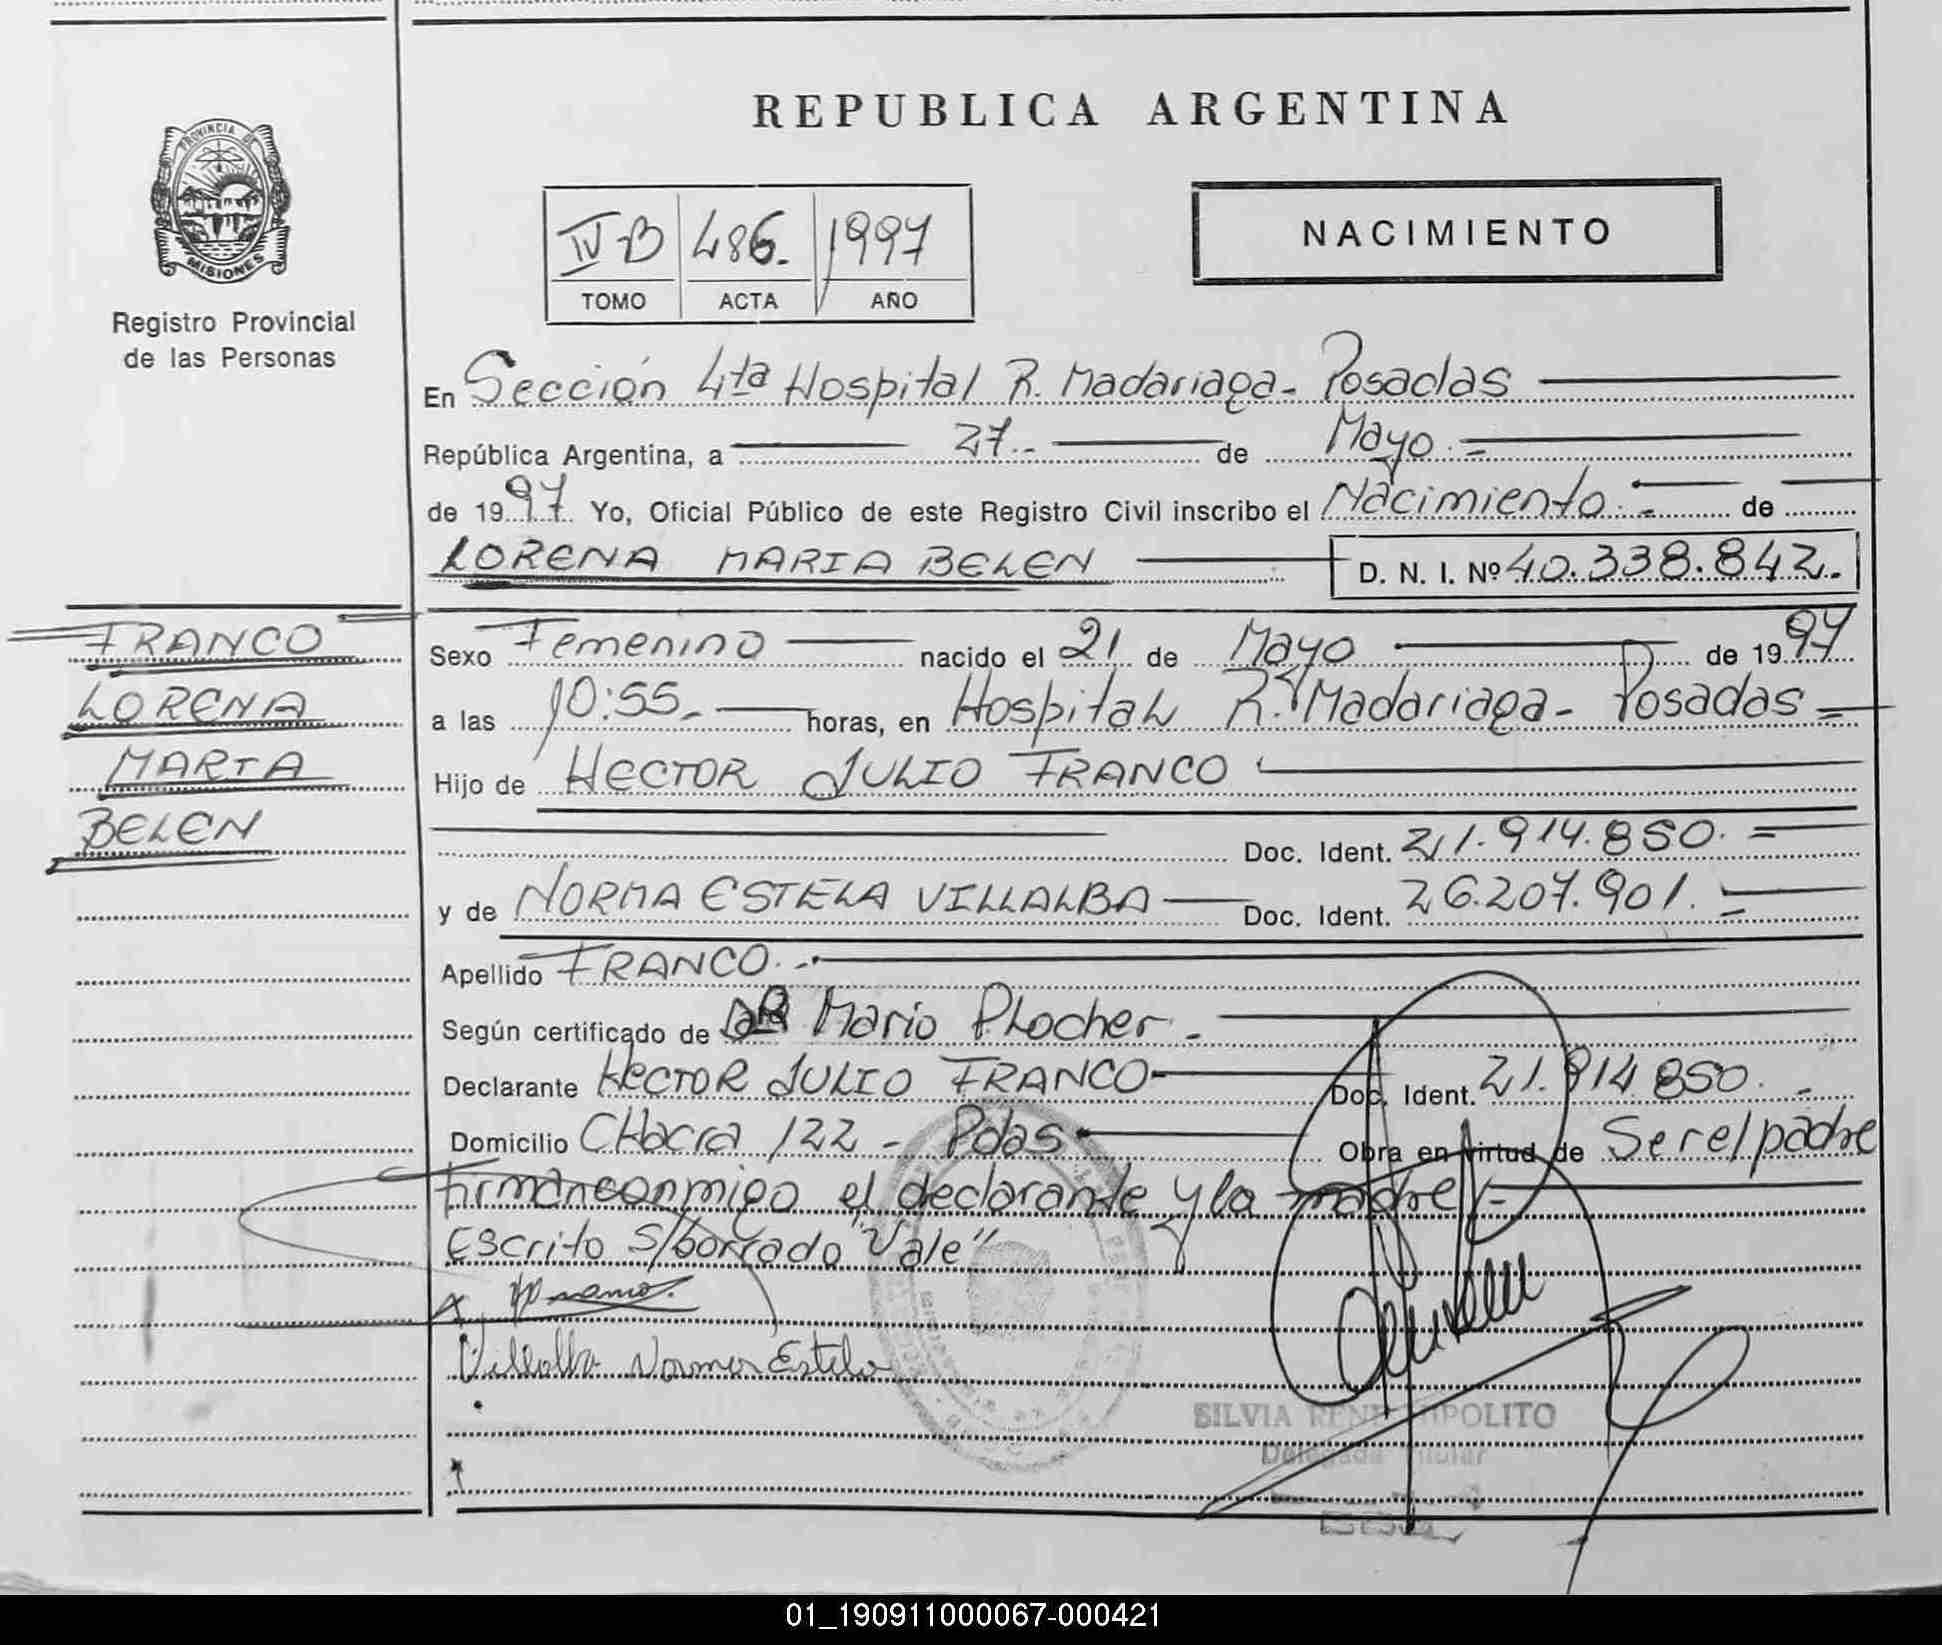 REPUBLICA ARGENTINA
PROVINCIA DE
MISIONES
Registro Provincial
de las Personas
IV-B 486. 1997
TOMO ACTA AÑO
NACIMIENTO
En Sección 4ta Hospital R. Madariaga - Posadas
República Argentina, a 27 - de Mayo
de 1997 Yo, Oficial Público de este Registro Civil inscribo el Nacimiento de
LORENA MARIA BELEN D. N. I. Nº 40.338.842.
FRANCO
LORENA
MARIA
BELEN
Sexo Femenino nacido el 21 de Mayo de 1997
a las 10:55 horas, en Hospital R. Madariaga - Posadas
Hijo de HECTOR JULIO FRANCO
Doc. Ident. 21.914.850.
y de NORMA ESTELA VILLALBA Doc. Ident. 26.207.901.
Apellido FRANCO
Según certificado de DR Mario Plocher
Declarante HECTOR JULIO FRANCO Doc. Ident. 21.914.850.
Domicilio CHacra 122 - Pdas Obra en virtud de Ser el padre
firman conmigo el declarante y la madre
Escrito s/borrado "Vale"
Villalba Norma Estela
SILVIA
Delegada Titular
01_190911000067-000421